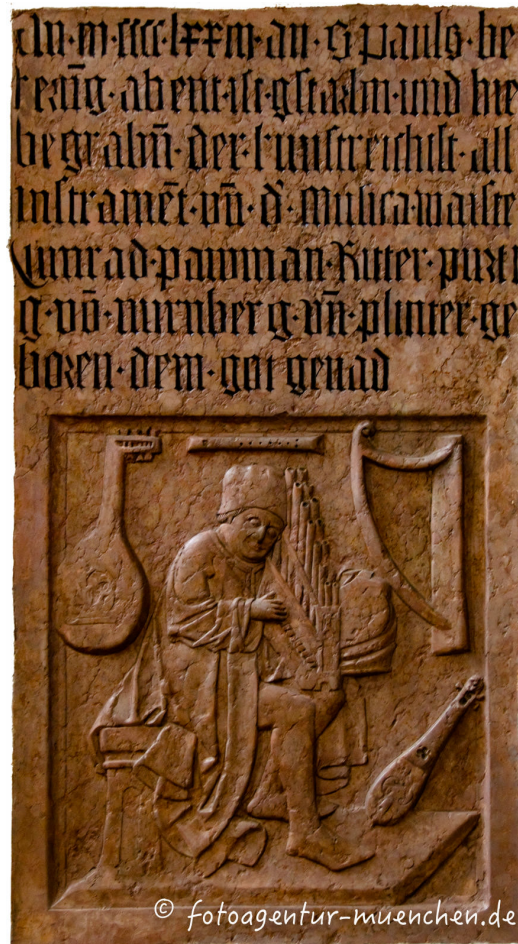 An · m · cccc · lxxiii · an · S pauls · be
kerūg · abent · ist · gstarbm · und hie
begrabn̄ · der · kunstreichist · all
instramēt · vn̄ · d' · Musica · maiste
Cunrad · pawman · Ritter · purti
g · vō · nurnberg · vn̄ · plinter · ge
boren · dem · got genad
© fotoagentur-muenchen.de